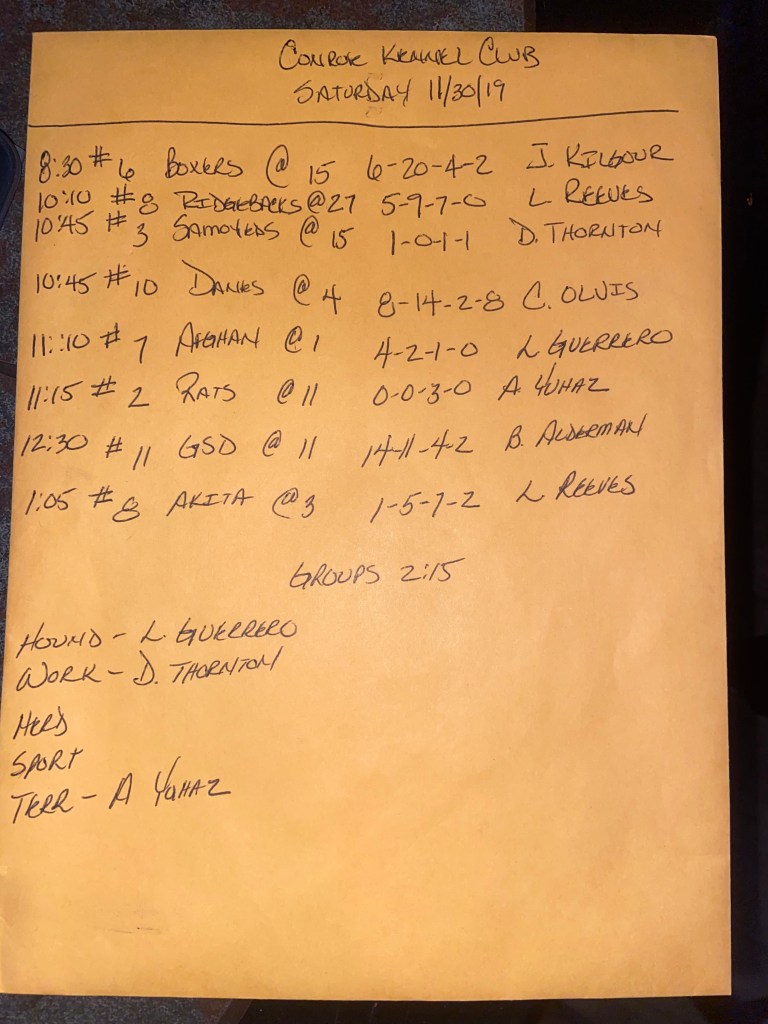 CONROE KENNEL CLUB
SATURDAY 11/30/19
8:30 #6 BOXERS @ 15 6-20-4-2 J. KILGOUR
10:10 #8 RIDGEBACKS @ 27 5-9-7-0 L REEVES
10:45 #3 SAMOYEDS @ 15 1-0-1-1 D. THORNTON
10:45 #10 DANES @ 4 8-14-2-8 C. OLVIS
11:10 #7 AFGHAN @ 1 4-2-1-0 L GUERRERO
11:15 #2 RATS @ 11 0-0-3-0 A. YUHAZ
12:30 #11 GSD @ 11 14-11-4-2 B. ALDERMAN
1:05 #8 AKITA @ 3 1-5-7-2 L REEVES
GROUPS 2:15
HOUND - L. GUERRERO
WORK - D. THORNTON
HERD
SPORT
TERR - A YUHAZ